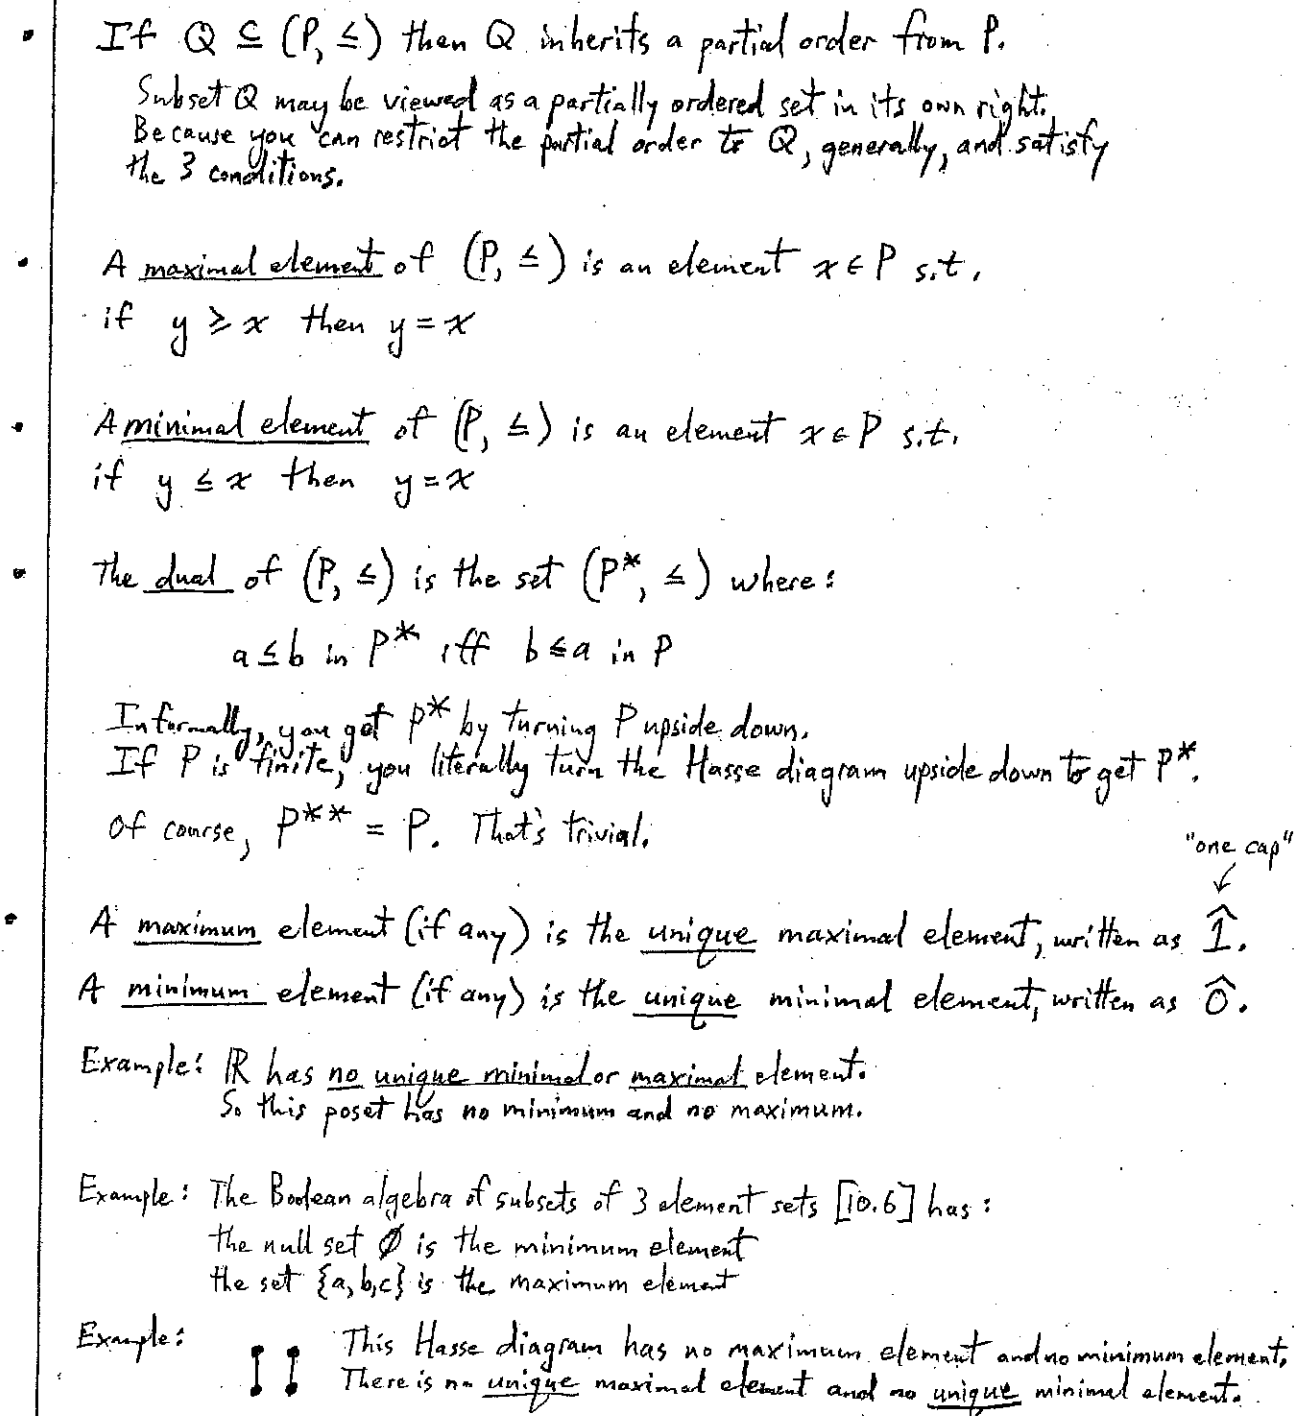 If Q ⊆ (P, ≤) then Q inherits a partial order from P.
Subset Q may be viewed as a partially ordered set in its own right.
Because you can restrict the partial order to Q, generally, and satisfy
the 3 conditions.
A maximal element of (P, ≤) is an element x ∈ P s.t.
if y ≥ x then y = x
A minimal element of (P, ≤) is an element x ∈ P s.t.
if y ≤ x then y = x
The dual of (P, ≤) is the set (P*, ≤) where:
a ≤ b in P* iff b ≤ a in P
Informally, you get P* by turning P upside down.
If P is finite, you literally turn the Hasse diagram upside down to get P*.
Of course, P** = P. That's trivial.
"one cap"
A maximum element (if any) is the unique maximal element, written as 1̂.
A minimum element (if any) is the unique minimal element, written as 0̂.
Example: ℝ has no unique minimal or maximal element.
So this poset has no minimum and no maximum.
Example: The Boolean algebra of subsets of 3 element sets [10.6] has:
the null set ∅ is the minimum element
the set {a,b,c} is the maximum element
Example: This Hasse diagram has no maximum element and no minimum element.
There is no unique maximal element and no unique minimal element.